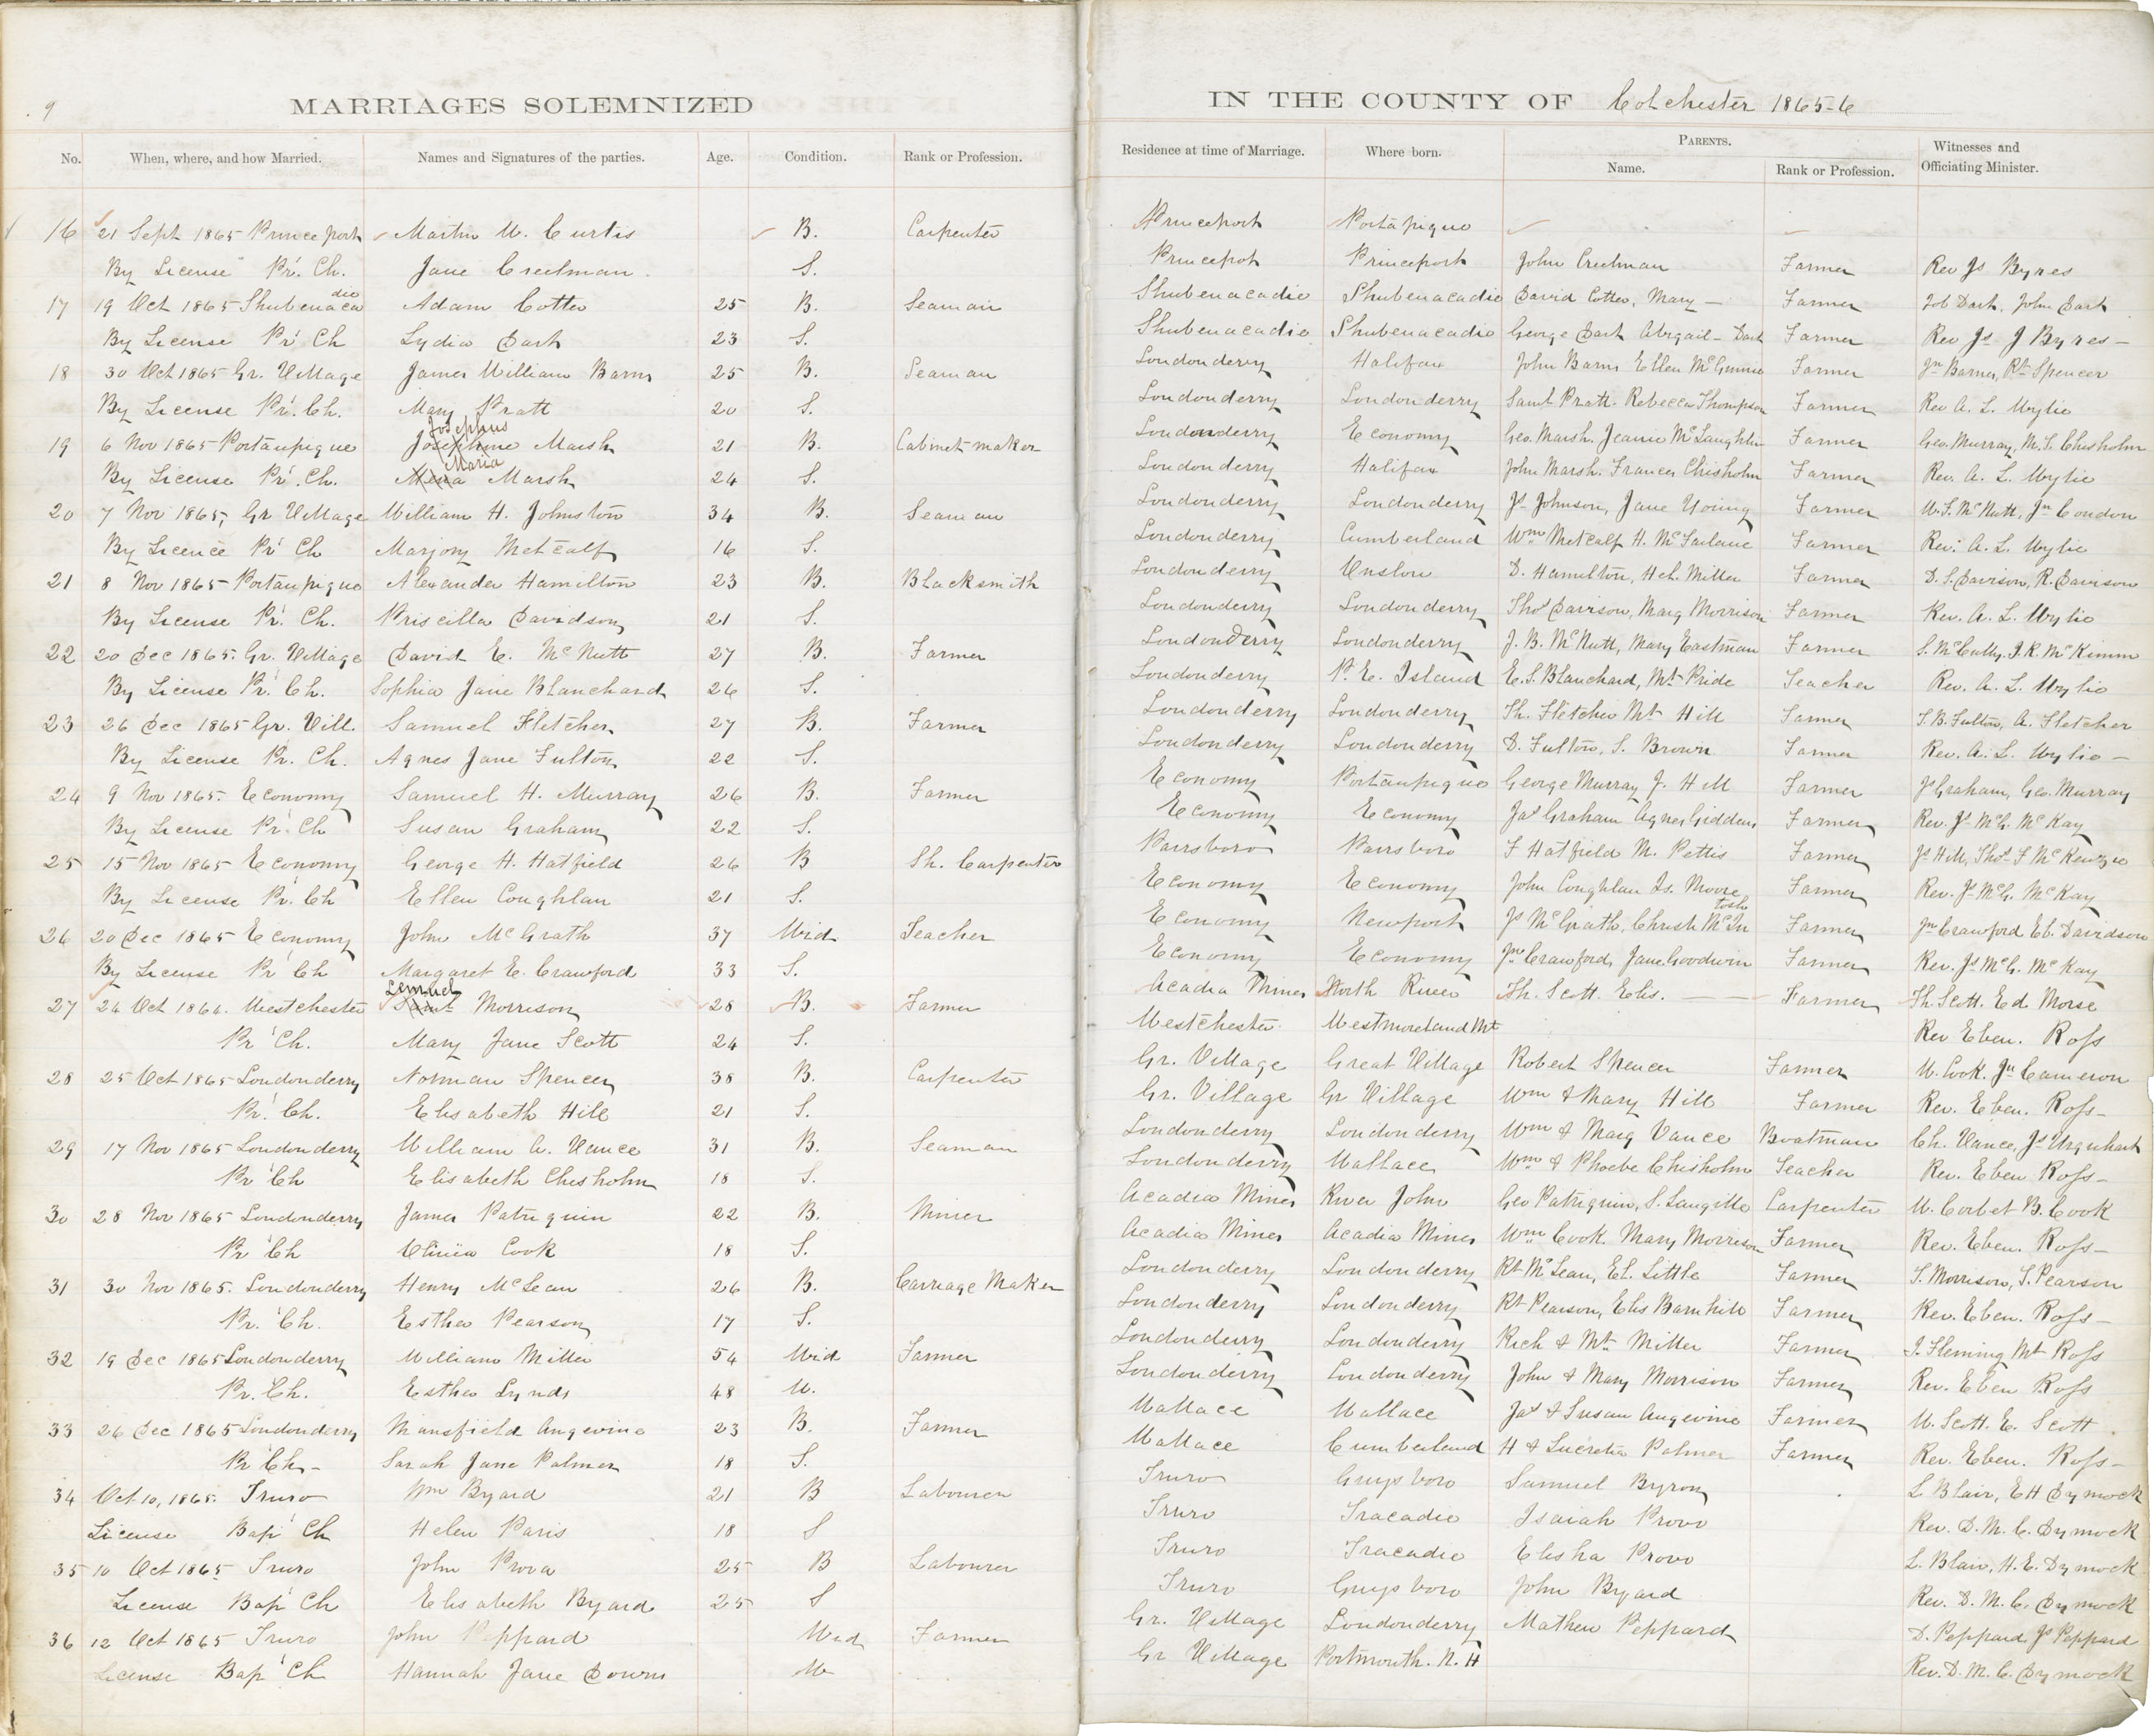 9
MARRIAGES SOLEMNIZED
IN THE COUNTY OF Colchester 1865-6
No. When, where, and how Married. Names and Signatures of the parties. Age. Condition. Rank or Profession. Residence at time of Marriage. Where born. PARENTS. Name. Rank or Profession. Witnesses and Officiating Minister.
16 21 Sept 1865 Princeport Martin W. Curtis B. Carpenter Princeport Portapique
By License Pr. Ch. Jane Creelman S. Princepot Princeport John Creelman Farmer Rev Js Byres
17 19 Oct 1865 Shubenacadie Adam Cotter 25 B. Seaman Shubenacadie Shubenacadie David Cotter, Mary — Farmer Job Dart, John Dart
By License Pr. Ch Lydia Dart 23 S. Shubenacadie Shubenacadie George Dart Abigail - Dart Farmer Rev Js J Byres —
18 30 Oct 1865 Gr. Village James William Barns 25 B. Seaman Londonderry Halifax John Barns Ellen McGinnis Farmer Jn Barnes, Rt Spencer
By License Pr. Ch. Mary Pratt 20 S. Londonderry Londonderry Saml Pratt. Rebecca Thompson Farmer Rev A. L. Wylie
19 6 Nov 1865 Portaupique Josephine Josephus Marsh 21 B. Cabinet maker Londonderry Economy Geo. Marsh. Jeanie McLaughlin Farmer Geo. Murray, M. S. Chisholm
By License Pr. Ch. Maria Marsh 24 S. Londonderry Halifax John Marsh. Frances Chisholm Farmer Rev. A. L. Wylie
20 7 Nov 1865, Gr Village William H. Johnston 34 B. Seaman Londonderry Londonderry Js Johnson, Jane Young Farmer W. S. McNutt, Jn Condon
By Licence Pr Ch Marjory Metcalf 16 S. Londonderry Cumberland Wm Metcalf H. McFarlane Farmer Rev. A. L. Wylie
21 8 Nov 1865 Portaupique Alexander Hamilton 23 B. Blacksmith Londonderry Onslow D. Hamilton, Hel. Miller Farmer D. S. Davison, R. Davison
By License Pr. Ch. Priscilla Davidson 21 S. Londonderry Londonderry Thos Davison, Marg Morrison Farmer Rev. A. L. Wylie
22 20 Dec 1865. Gr. Village David E. McNutt 27 B. Farmer Londonderry Londonderry J. B. McNutt, Mary Eastman Farmer S. McCully. J. R. McKimm
By License Pr. Ch. Sophia Jane Blanchard 26 S. Londonderry P. E. Island E. S. Blanchard, Mt Pride Teacher Rev. A. L. Wylie
23 26 Dec 1865 Gr. Vill. Samuel Fletcher 27 B. Farmer Londonderry Londonderry Th. Fletcher Mt Hill Farmer S. B. Fulton, A. Fletcher
By License Pr. Ch. Agnes Jane Fulton 22 S. Londonderry Londonderry D. Fulton, S. Brown Farmer Rev. A. L. Wylie —
24 9 Nov 1865. Economy Samuel H. Murray 26 B. Farmer Economy Portaupique George Murray J. Hill Farmer Js Graham, Geo. Murray
By License Pr. Ch Susan Graham 22 S. Economy Economy Jas Graham Agnes Giddens Farmer Rev. Js McG. McKay
25 15 Nov 1865 Economy George H. Hatfield 26 B Sh. Carpenter Parrsboro Parrsboro F Hatfield M. Pettis Farmer Js Hill, Thos F McKenzie
By License Pr. Ch Ellen Coughlan 21 S. Economy Economy John Coughlan Is. Moore Farmer Rev. Js McG. McKay
26 20 Dec 1865 Economy John McGrath 37 Wid Teacher Economy Newport Js McGrath, Christ McIntosh Farmer Jn Crawford Eb. Davidson
By License Pr Ch Margaret E. Crawford 33 S. Economy Economy Jno Crawford, Jane Goodwin Farmer Rev. Js McG. McKay
27 24 Oct 1866. Westchester Saml Lemuel Morrison 28 B. Farmer Acadia Mines North River Th. Scott. Elis. — Farmer Th Scott. Ed Morse
Pr Ch. Mary Jane Scott 24 S. Westchester Westmoreland Mt Rev Eben. Ross
28 25 Oct 1865 Londonderry Norman Spencer 38 B. Carpenter Gr. Village Great Village Robert Spencer Farmer W. Cook. Jn Cameron
Pr. Ch. Elisabeth Hill 21 S. Gr. Village Gr Village Wm & Mary Hill Farmer Rev. Eben. Ross —
29 17 Nov 1865 Londonderry William A. Vance 31 B. Seaman Londonderry Londonderry Wm & Marg Vance Boatman Ch. Vance, Js Urquhart
Pr Ch Elisabeth Chisholm 18 S. Londonderry Wallace Wm & Phoebe Chisholm Teacher Rev. Eben Ross —
30 28 Nov 1865 Londonderry James Patriquin 22 B. Miner Acadia Mines River John Geo Patriquin, S. Langille Carpenter W. Corbet B. Cook
Pr Ch Cook 18 S. Acadia Mines Acadia Mines Wm Cook. Mary Morrison Farmer Rev. Eben. Ross —
31 30 Nov 1865. Londonderry Henry McLean 26 B. Carriage Maker Londonderry Londonderry Rt McLean, El. Little Farmer S. Morrison, S. Pearson
Pr. Ch. Esther Pearson 17 S. Londonderry Londonderry Rt Pearson, Elis Barnhill Farmer Rev. Eben. Ross —
32 19 Dec 1865 Londonderry William Miller 54 Wid Farmer Londonderry Londonderry Rich & Mt Miller Farmer J. Fleming Mt Ross
Pr. Ch. Esther Lynds 48 W. Londonderry Londonderry John & Mary Morrison Farmer Rev. Eben Ross
33 26 Dec 1865 Londonderry Mansfield Angevine 23 B. Farmer Wallace Wallace Jas & Susan Angevine Farmer W. Scott. E. Scott
Pr Ch. — Sarah Jane Palmer 18 S. Wallace Cumberland H & Lucretia Palmer Farmer Rev. Eben. Ross —
34 Oct 10, 1865. Truro Wm Byard 21 B Labourer Truro Guysboro Samuel Byron L Blair, E H Dymock
License Bap Ch Helen Paris 18 S Truro Tracadie Isaiah Provo Rev. D. M. C. Dymock
35 10 Oct 1865 Truro John Prova 25 B Labourer Truro Tracadie Elisha Provo L. Blair, H. E. Dymock
License Bap Ch Elisabeth Byard 25 S Truro Guysboro John Byard Rev. D. M. C. Dymock
36 12 Oct 1865 Truro John Peppard Wid Farmer Gr. Village Londonderry Mathew Peppard D. Peppard, Js Peppard
License Bap Ch Hannah Jane Downs W Gr Village Portmouth. N. H Rev. D. M. C. Dymock